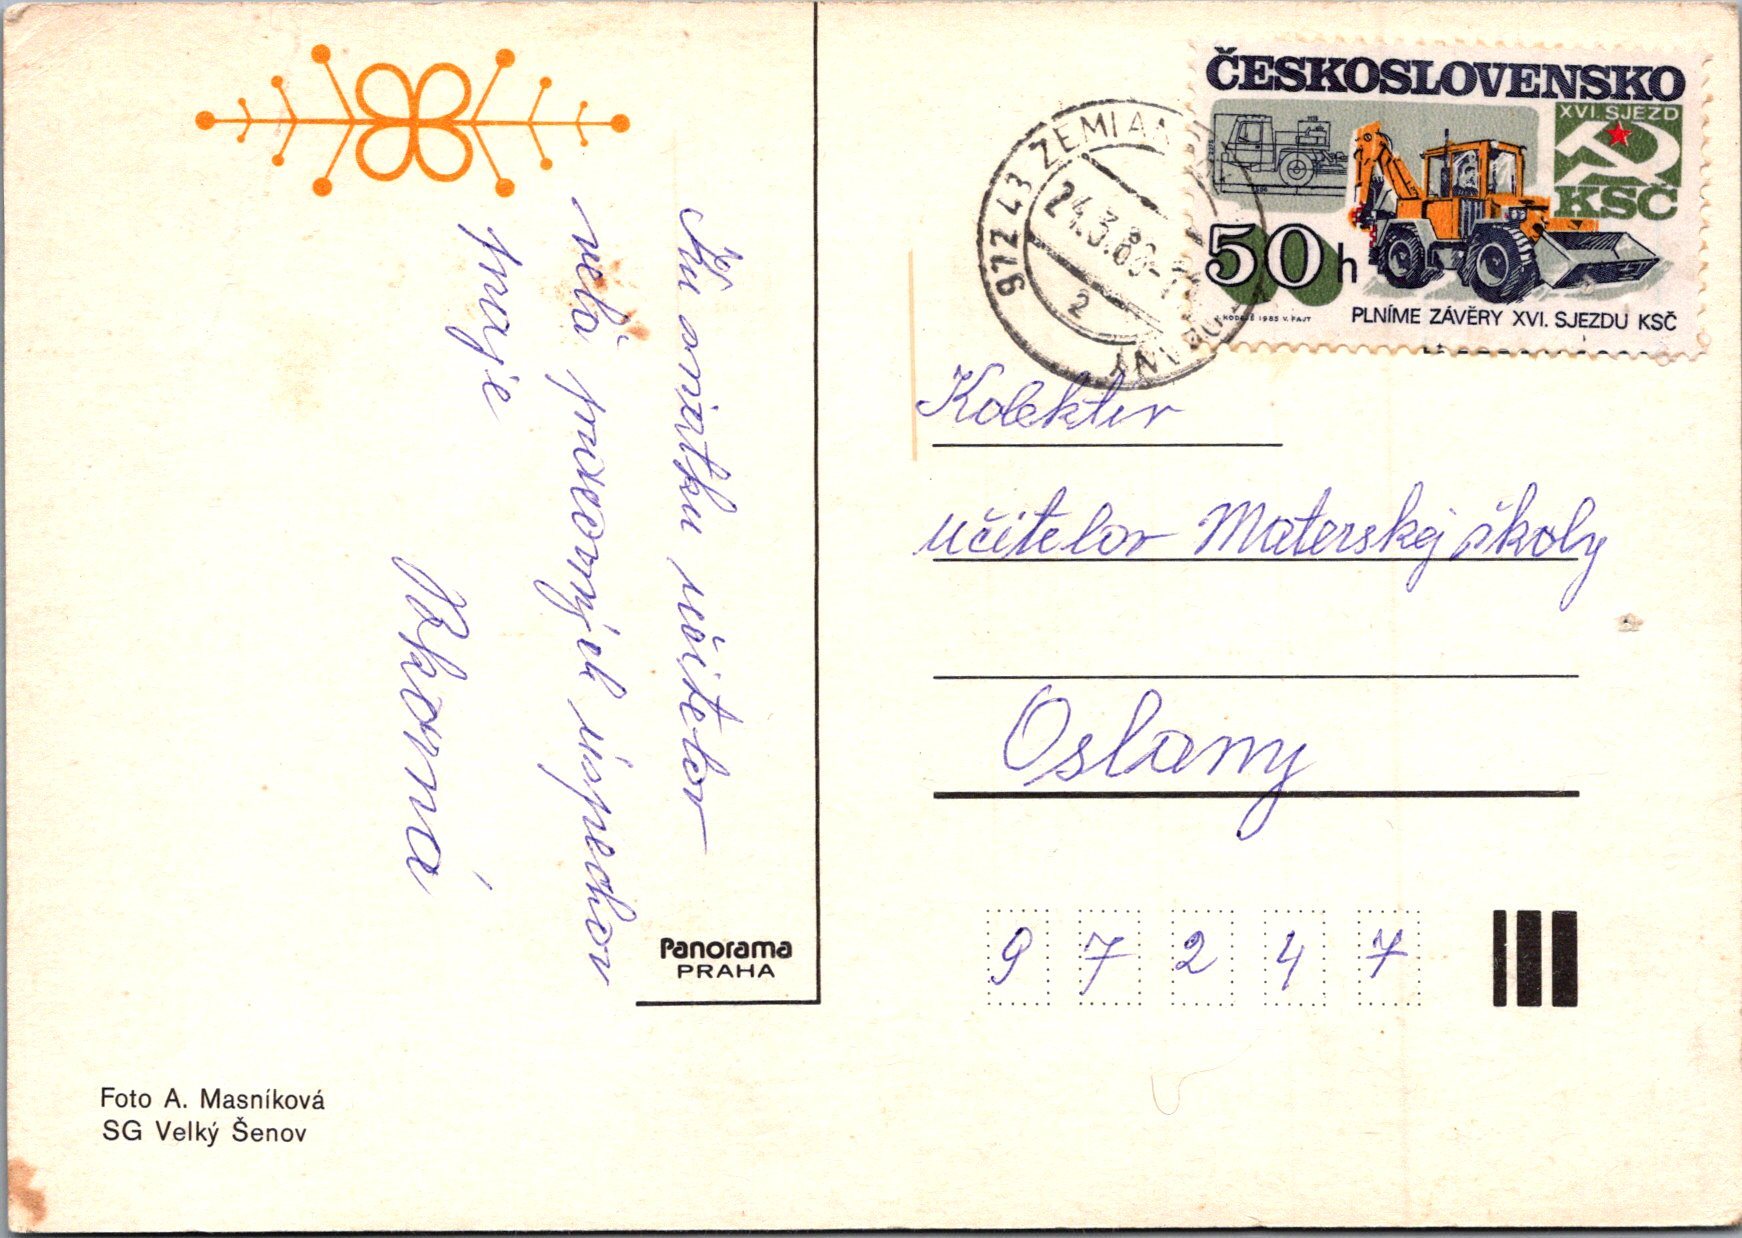 Ku sviatku učitelov
veľa pracovných úspechov
praje
ČESKOSLOVENSKO
XVI. SJEZD
KSČ
50 h
PLNÍME ZÁVĚRY XVI. SJEZDU KSČ
1985 V. FAJT
972 43 ZEMIAN
24.3.86
2
Kolektív
učitelov Materskej školy
Oslany
9 7 2 4 7
Panorama
PRAHA
Foto A. Masníková
SG Velký Šenov